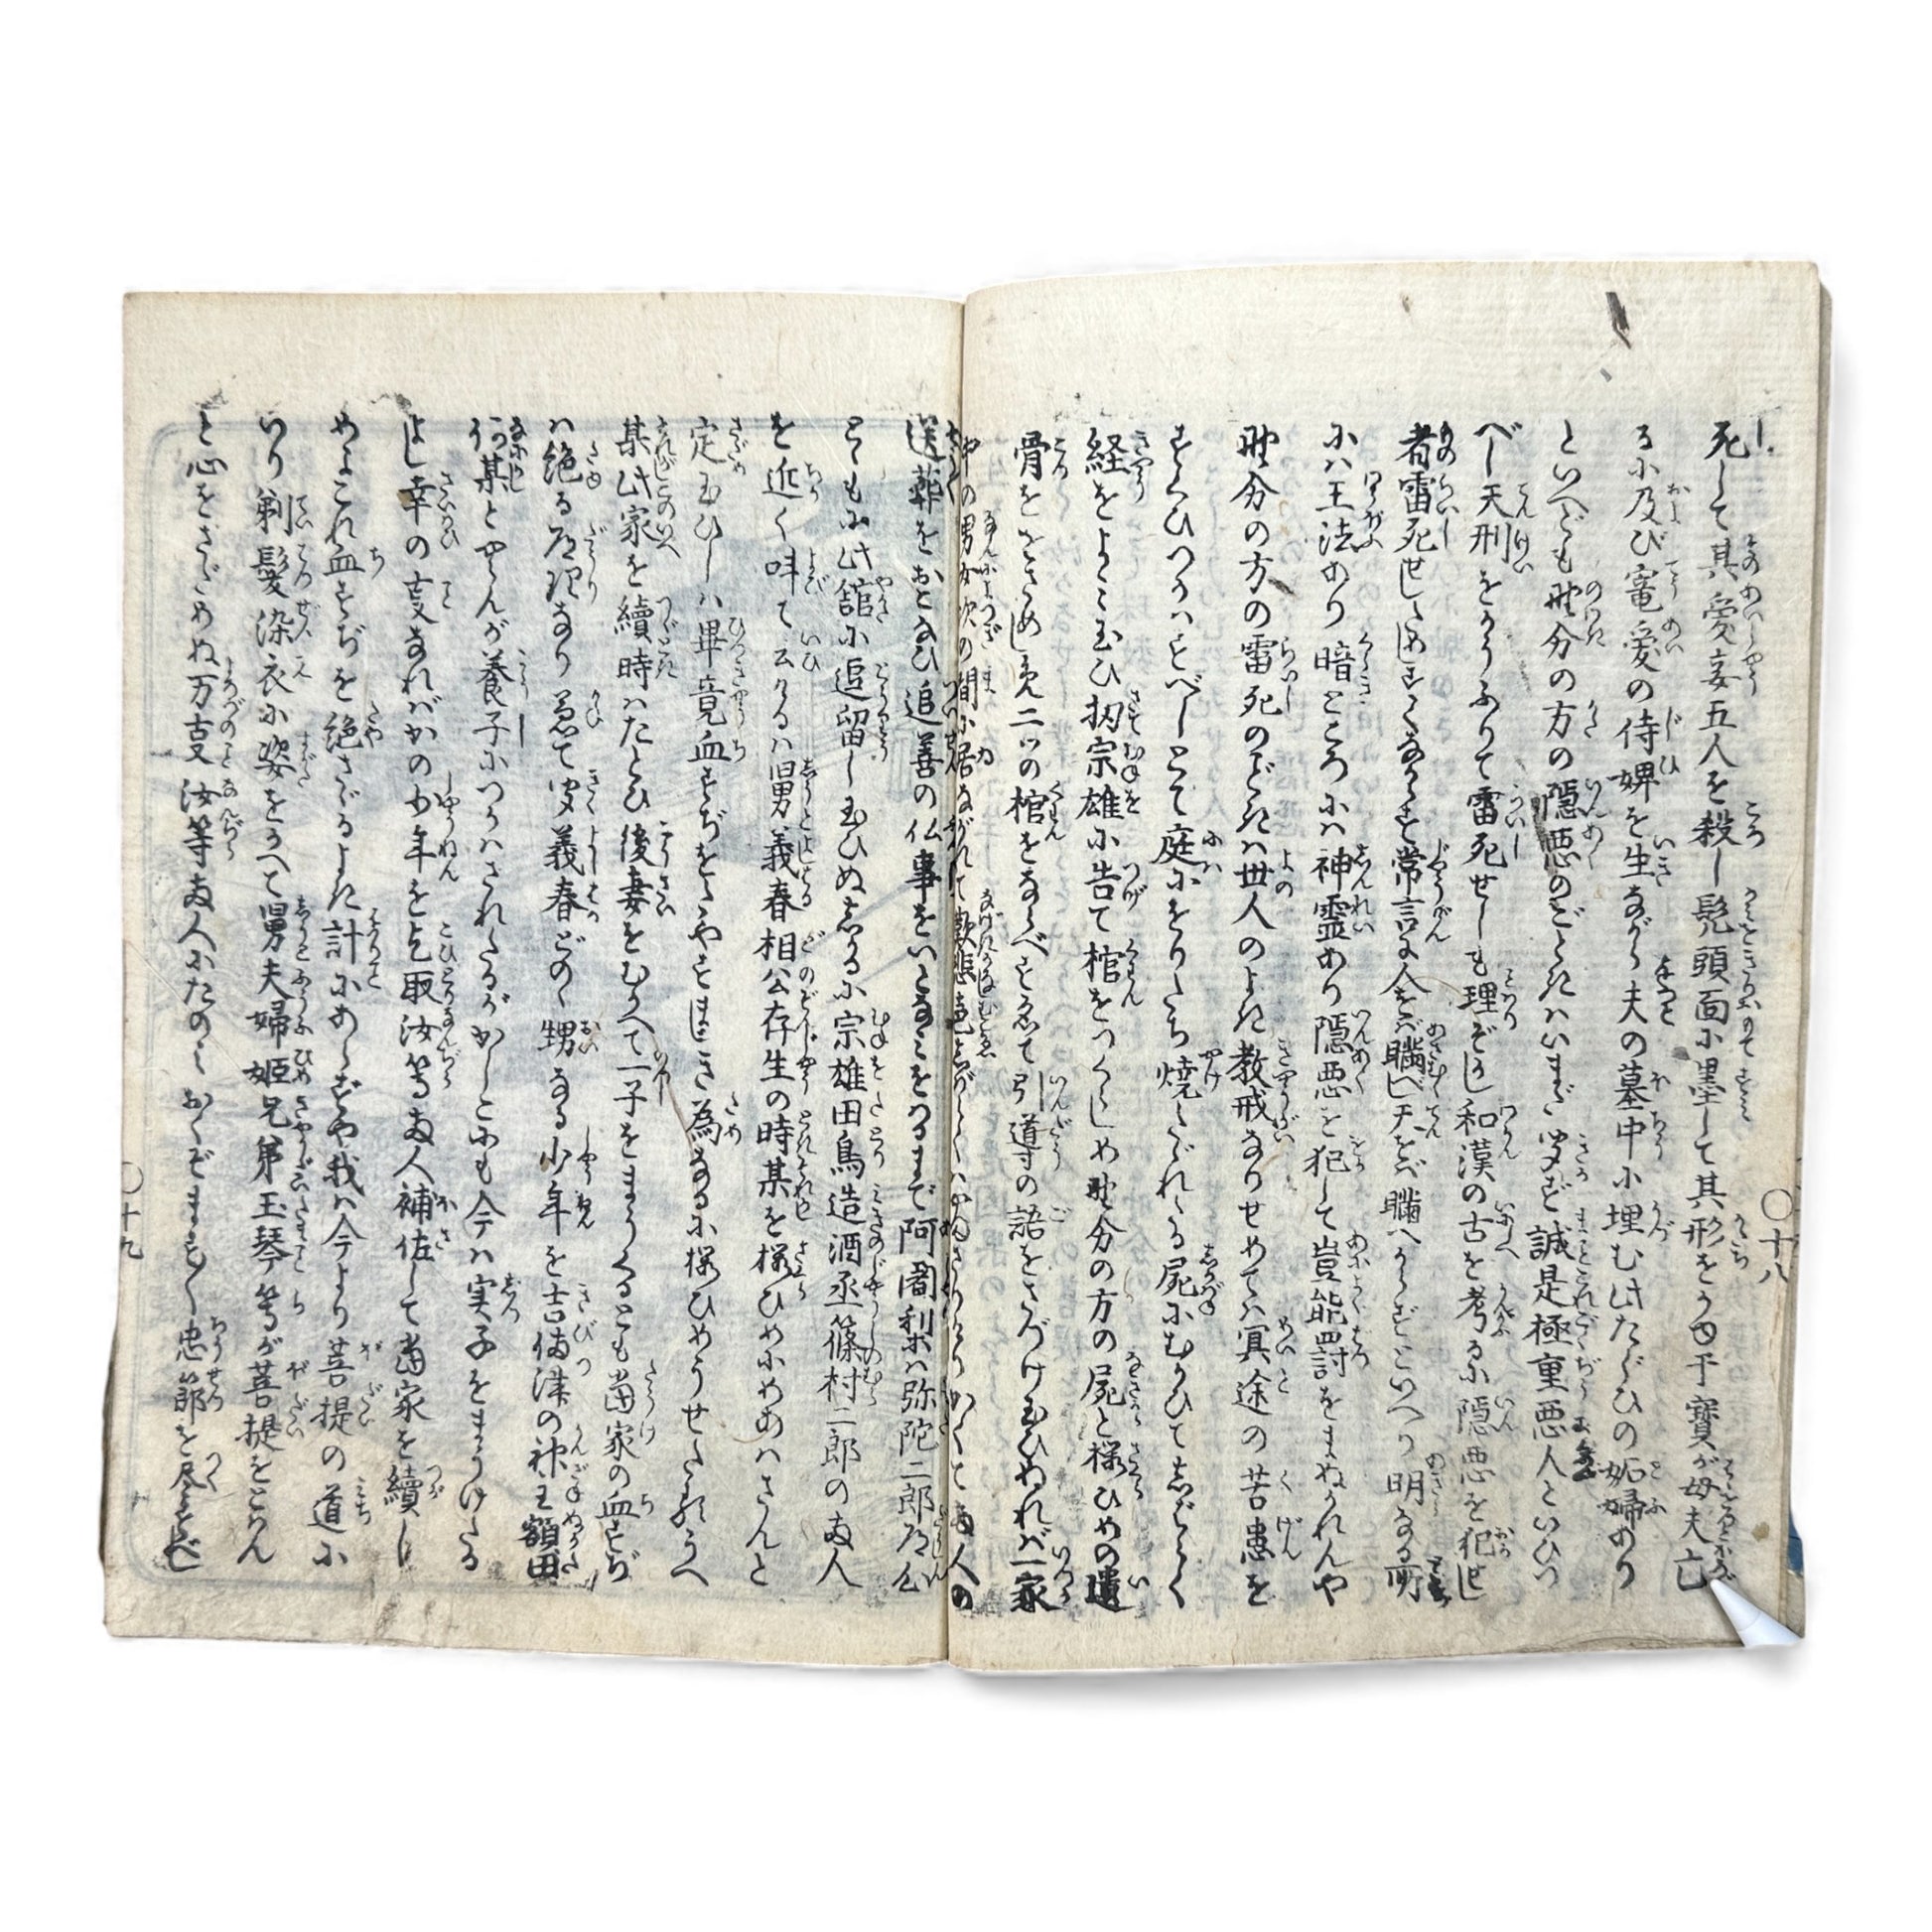 死して其愛妾五人を殺し髡頭面に墨して其形をかゆ干寶が母夫亡
るに及び寵愛の侍婢を生ながら夫の墓中に埋む此たぐひの妬婦あり
といへども野分の方の隠悪のごときはいまだ聞ず誠是極重悪人といひつ
べし天刑をかうふりて雷死せしも理ぞかし和漢の古を考るに隠悪を犯せし
者雷死せしためしすくなからず常言に人をば瞞べし天をば瞞べからずといへり明なる所
には王法あり暗ところには神霊あり隠悪を犯して豈能罸をまぬかれんや
野分の方の雷死のごときは世人のよき教戒なりせめては冥途の苦患を
すくひつかはすべしとて庭におりたち焼たゞれたる屍にむかひてしばらく
経をよみ玉ひ扨宗雄に告て棺をつくらしめ野分の方の屍と桜ひめの遺
骨をおさめし二ツの棺をならべすゑて引導の語をさづけ玉ひぬれば一家
中の男女次の間に居ながれて歎悲
送葬をおこなひ追善の仏事をいとなみをはるまで阿闍梨は弥陀二郎
ともに此舘に追留し玉ひぬしかるに宗雄田鳥造酒丞篠村二郎の両人
を近く呼て云けるは舅義春相公存生の時某を桜ひめにめあはさんと
定玉ひしは畢竟血すぢをたやすまじき為なるに桜ひめうせたるうへ
某此家を續時はたとひ後妻をむかへて一子をまうくるとも當家の血すぢ
は絶る道理なり兼て聞義春どのゝ甥なる少年を吉備津の神主額田
何某とやらんが養子につかはされたるがかしこにも今は実子をまうけたる
よし幸の支なればかの少年を乞取汝等両人補佐して當家を續し
めよこれ血すぢを絶ざるよき計にあらずや我は今より菩提の道に
いり剃髪染衣に姿をかへて舅夫婦姫兄弟玉琴等が菩提をとらん
と心をさだめぬ万支汝等両人にたのむ